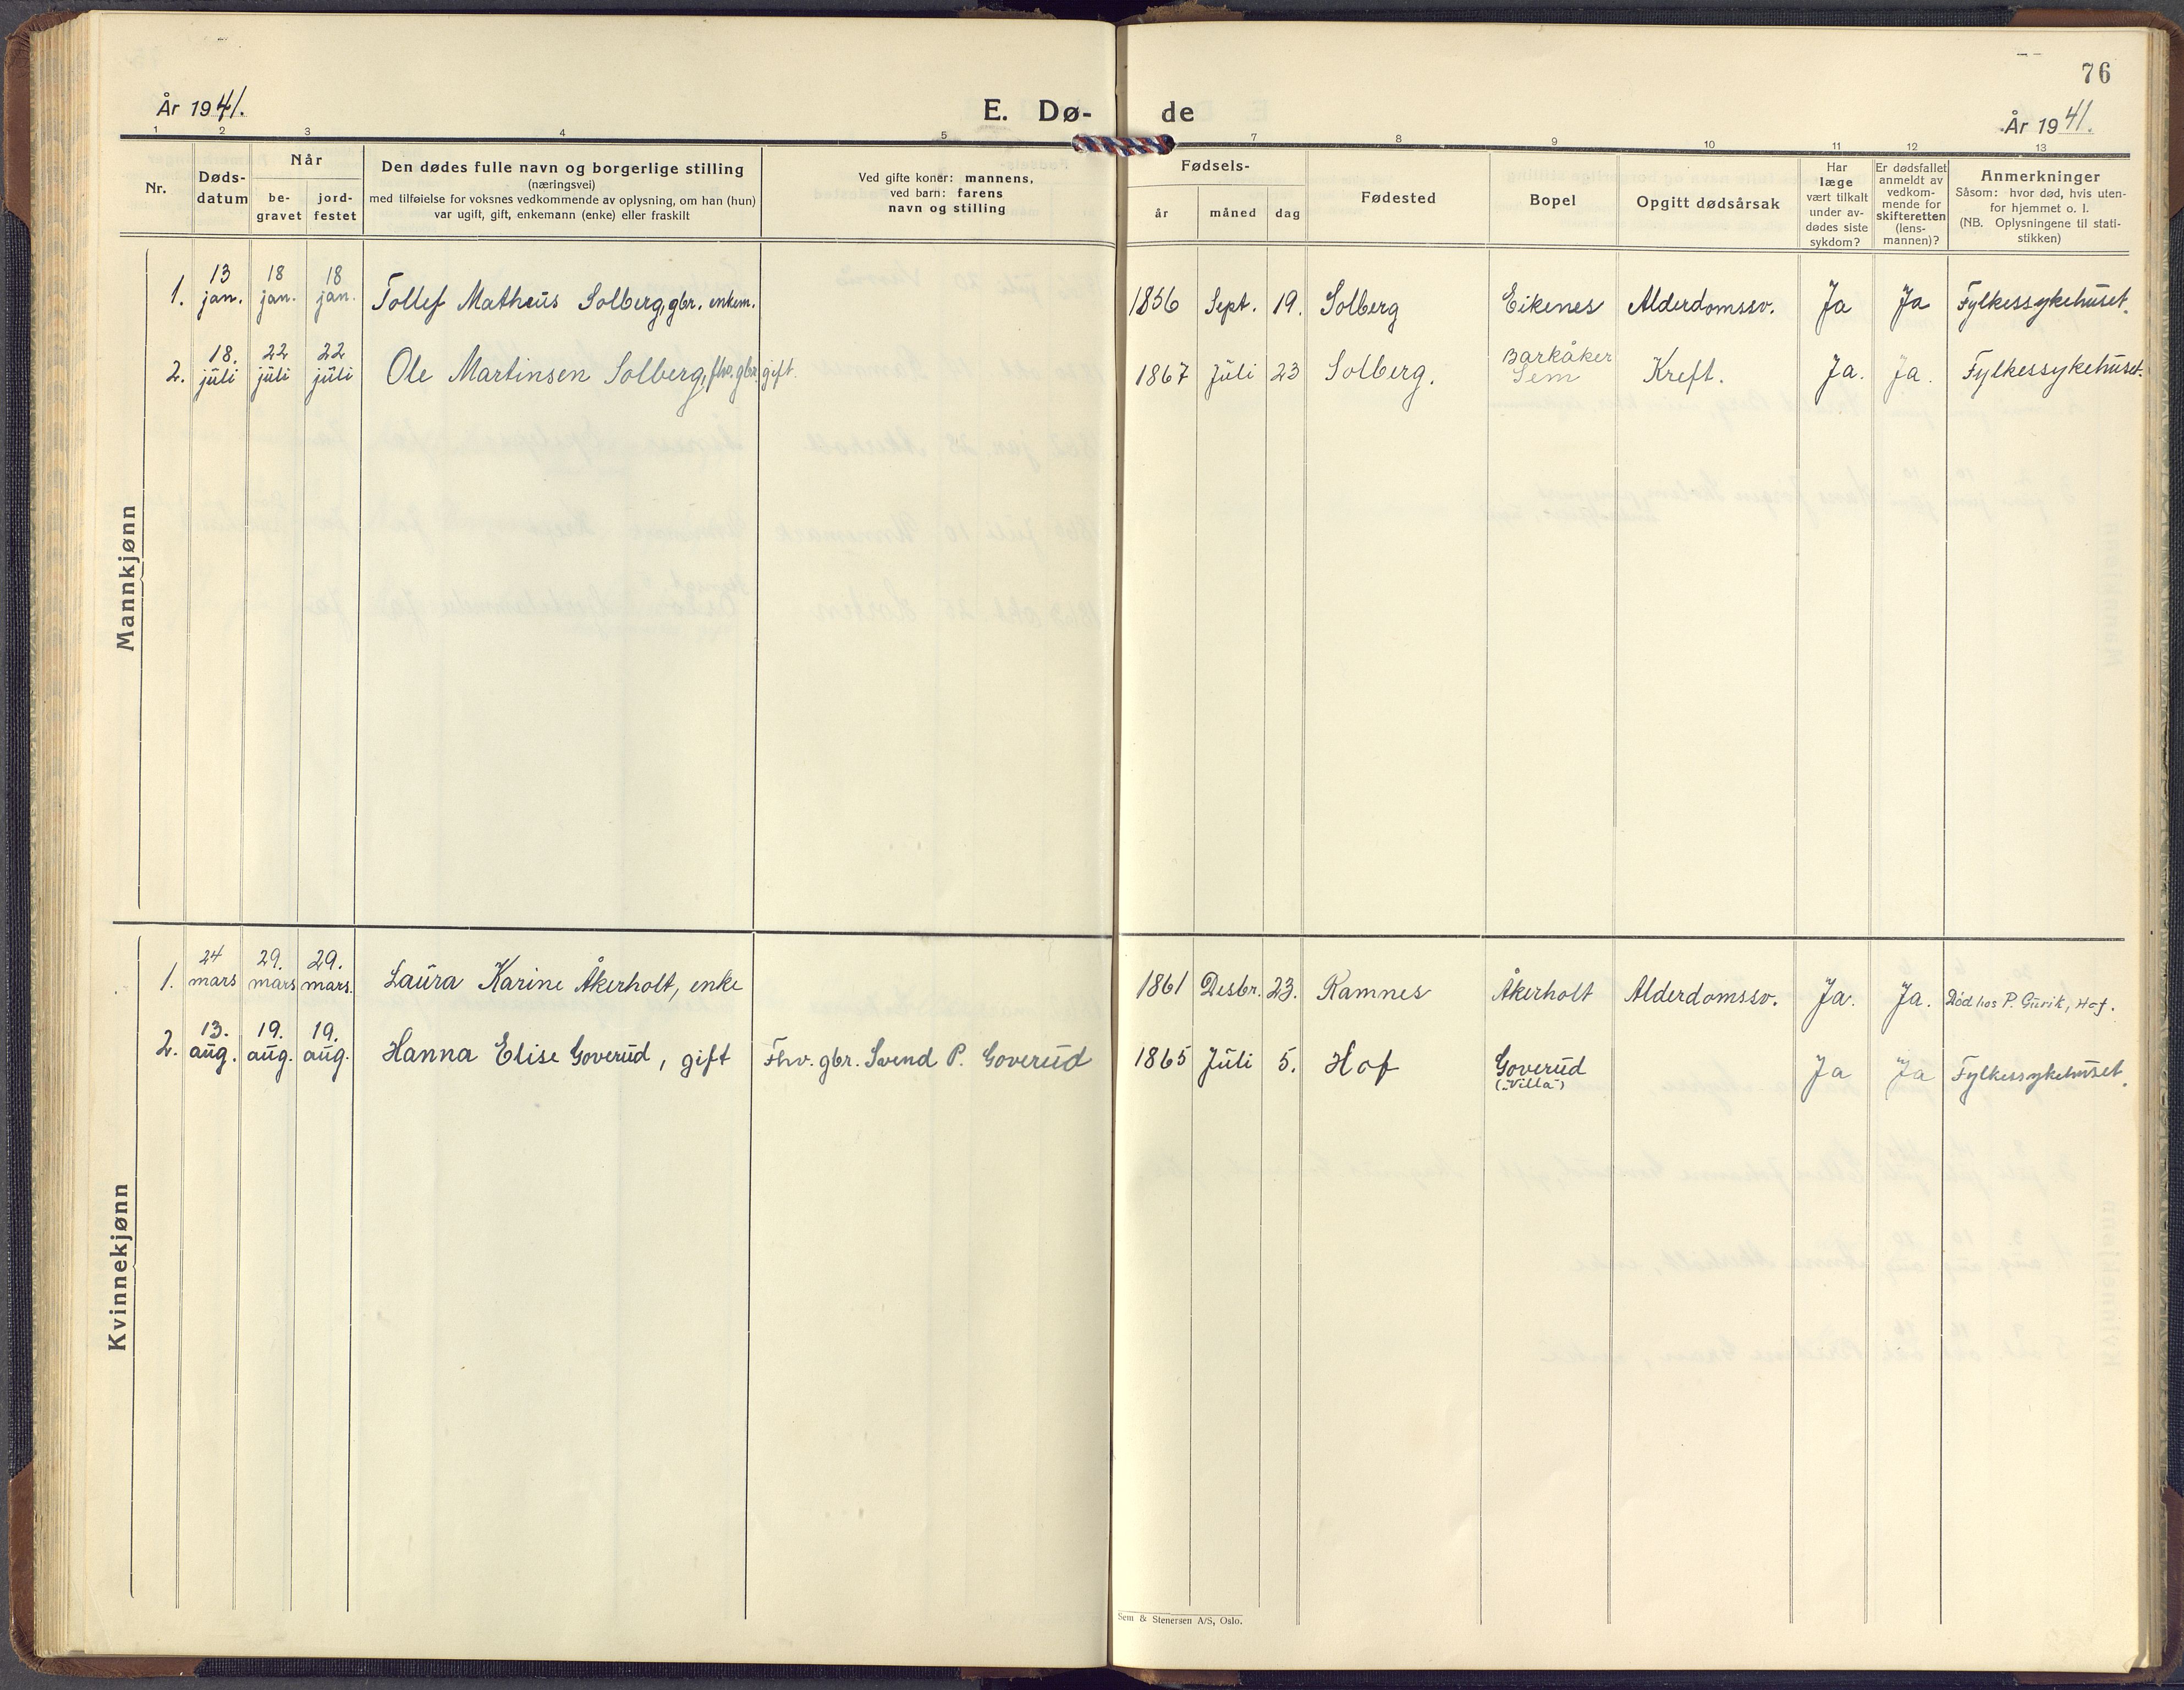 76
År 1941.
E. Dø- de
År 1941.
1 2 3 4 5 7 8 9 10 11 12 13
Nr.
Døds-
datum
Når
be-
gravet
jord-
festet
Den dødes fulle navn og borgerlige stilling
(næringsvei)
med tilføielse for voksnes vedkommende av oplysning, om han (hun)
var ugift, gift, enkemann (enke) eller fraskilt
Ved gifte koner: mannens,
ved barn: farens
navn og stilling
Fødsels-
år måned dag
Fødested
Bopel
Opgitt dødsårsak
Har
læge
vært tilkalt
under av-
dødes siste
sykdom?
Er dødsfallet
anmeldt av
vedkom-
mende for
skifteretten
(lens-
mannen)?
Anmerkninger
Såsom: hvor død, hvis uten-
for hjemmet o. l.
(NB. Oplysningene til stati-
stikken)
Mannkjønn
13 18 18
1. jan. jan. jan. Tollef Matheus Solberg, gbr. enkem. 1856 Sept. 19. Solberg Eikenes Alderdomssv. Ja Ja Fylkessykehuset.
18. 22 22 Barkåker
2. juli juli juli Ole Martinsen Solberg, fhv. gbr. gift. 1867 Juli 23 Solberg. Sem Kreft. Ja. Ja. Fylkessykehuset.
Kvinnekjønn
24 29. 29.
1. mars mars mars. Laura Karine Åkerholt, enke 1861 Desbr. 23. Ramnes Åkerholt Alderdomssv. Ja. Ja. Død hos P. Gurik, Hof.
13. 19. 19.
2. aug. aug. aug. Hanna Elise Goverud, gift Fhv. gbr. Svend P. Goverud 1865 Juli 5. Hof Goverud Ja Ja Fylkessykehuset.
("Villa")
Sem & Stenersen A/S, Oslo.